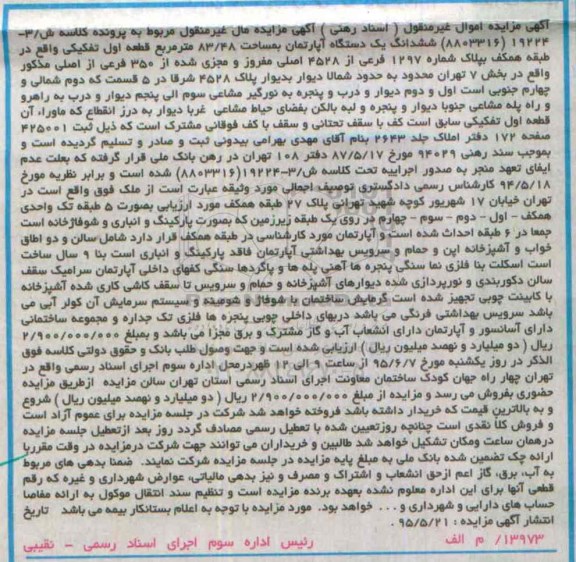 آگهی مزایده اموال غیرمنقول ( اسناد رهنی ) آگهی مزایده مال غیرمنقول مربوط به پرونده کلاسه ش/۳-
۱۹۲۲۴ (۸۸۰۳۳۱۶) ششدانگ یک دستگاه آپارتمان بمساحت ۸۳/۴۸ مترمربع قطعه اول تفکیکی واقع در
طبقه همکف بپلاک شماره ۱۲۹۷ فرعی از ۴۵۲۸ اصلی مفروز و مجزی شده از ۳۵۰ فرعی از اصلی مذکور
واقع در بخش ۷ تهران محدود به حدود شمالا دیوار بدیوار پلاک ۴۵۲۸ شرقا در ۵ قسمت که دوم شمالی و
چهارم جنوبی است اول و دوم دیوار و درب و پنجره به نورگیر مشاعی سوم الی پنجم دیوار و درب به راهرو
و راه پله مشاعی جنوبا دیوار و پنجره و لبه بالکن بفضای حیاط مشاعی غربا دیوار به درز انقطاع که ماوراء آن
قطعه اول تفکیکی سابق است کف با سقف تحتانی و سقف با کف فوقانی مشترک است که ذیل ثبت ۴۲۵۰۰۱
صفحه ۱۷۲ دفتر املاک جلد ۲۶۴۳ بنام آقای مهدی بهرامی بیدونی ثبت و صادر و تسلیم گردیده است و
بموجب سند رهنی ۹۴۰۲۹ مورخ ۸۷/۵/۱۷ دفتر ۱۰۸ تهران در رهن بانک ملی قرار گرفته که بعلت عدم
ایفای تعهد منجر به صدور اجراییه تحت کلاسه ش/۳-۱۹۲۲۴(۸۸۰۳۳۱۶) شده است و برابر نظریه مورخ
۹۴/۵/۱۸ کارشناس رسمی دادگستری توصیف اجمالی مورد وثیقه عبارت است از ملک فوق واقع است در
تهران خیابان ۱۷ شهریور کوچه شهید تهرانی پلاک ۲۷ طبقه همکف مورد ارزیابی بصورت ۵ طبقه تک واحدی
همکف - اول - دوم - سوم - چهارم در روی یک طبقه زیرزمین که بصورت پارکینگ و انباری و شوفاژخانه است
جمعا در ۶ طبقه احداث شده است و آپارتمان مورد کارشناسی در طبقه همکف قرار دارد شامل سالن و دو اطاق
خواب و آشپزخانه اپن و حمام و سرویس بهداشتی آپارتمان فاقد پارکینگ و انباری است بنا ۹ سال ساخت
است اسکلت بنا فلزی نما سنگی پنجره ها آهنی پله ها و پاگردها سنگی کفهای داخلی آپارتمان سرامیک سقف
سالن دکوربندی و نورپردازی شده دیوارهای آشپزخانه و حمام و سرویس تا سقف کاشی کاری شده آشپزخانه
با کابینت چوبی تجهیز شده است گرمایش ساختمان با شوفاژ و شومینه و سیستم سرمایش آن کولر آبی می
باشد سرویس بهداشتی فرنگی می باشد دربهای داخلی چوبی پنجره ها فلزی تک جداره و مجموعه ساختمانی
دارای آسانسور و آپارتمان دارای انشعاب آب و گاز مشترک و برق مجزا می باشد و بمبلغ ۲/۹۰۰/۰۰۰/۰۰۰
ریال ( دو میلیارد و نهصد میلیون ریال ) ارزیابی شده است و جهت وصول طلب بانک و حقوق دولتی کلاسه فوق
الذکر در روز یکشنبه مورخ ۹۵/۶/۷ از ساعت ۹ الی ۱۲ ظهردرمحل اداره سوم اجرای اسناد رسمی واقع در
تهران چهار راه جهان کودک ساختمان معاونت اجرای اسناد رسمی استان تهران سالن مزایده ازطریق مزایده
حضوری بفروش می رسد و مزایده از مبلغ ۲/۹۰۰/۰۰۰/۰۰۰ ریال ( دو میلیارد و نهصد میلیون ریال ) شروع
و به بالاترین قیمت که خریدار داشته باشد فروخته خواهد شد شرکت در جلسه مزایده برای عموم آزاد است
و فروش کلا نقدی است چنانچه روزتعیین شده با تعطیل رسمی مصادف گردد روز بعد ازتعطیل جلسه مزایده
درهمان ساعت ومکان تشکیل خواهد شد طالبین و خریداران می توانند جهت شرکت درمزایده در وقت مقرربا
ارائه چک تضمین شده بانک ملی به مبلغ پایه مزایده در جلسه مزایده شرکت نمایند. ضمنا بدهی های مربوط
به آب، برق، گاز اعم ازحق انشعاب و اشتراک و مصرف و نیز بدهی مالیاتی، عوارض شهرداری و غیره که رقم
قطعی آنها برای این اداره معلوم نشده بعهده برنده مزایده است و تنظیم سند انتقال موکول به ارائه مفاصا
حساب های دارایی و شهرداری و ... خواهد بود. مورد مزایده با توجه به اعلام بستانکار بیمه می باشد تاریخ
انتشار آگهی مزایده : ۹۵/۵/۲۱ .
۱۳۹۷۳/ م الف رئیس اداره سوم اجرای اسناد رسمی - نقیبی